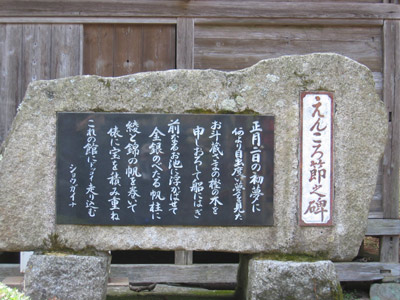 えんころ節之碑
正月二日の初夢に
何より目出度い夢を見た
お斗蔵さまの樫の木を
申しおろして船にはぎ
前なるお池に浮かばせて
金銀のべたる帆柱に
綾と錦の帆を巻いて
俵に宝を積み重ね
これの館にドンイ走り込む
ションガイナ